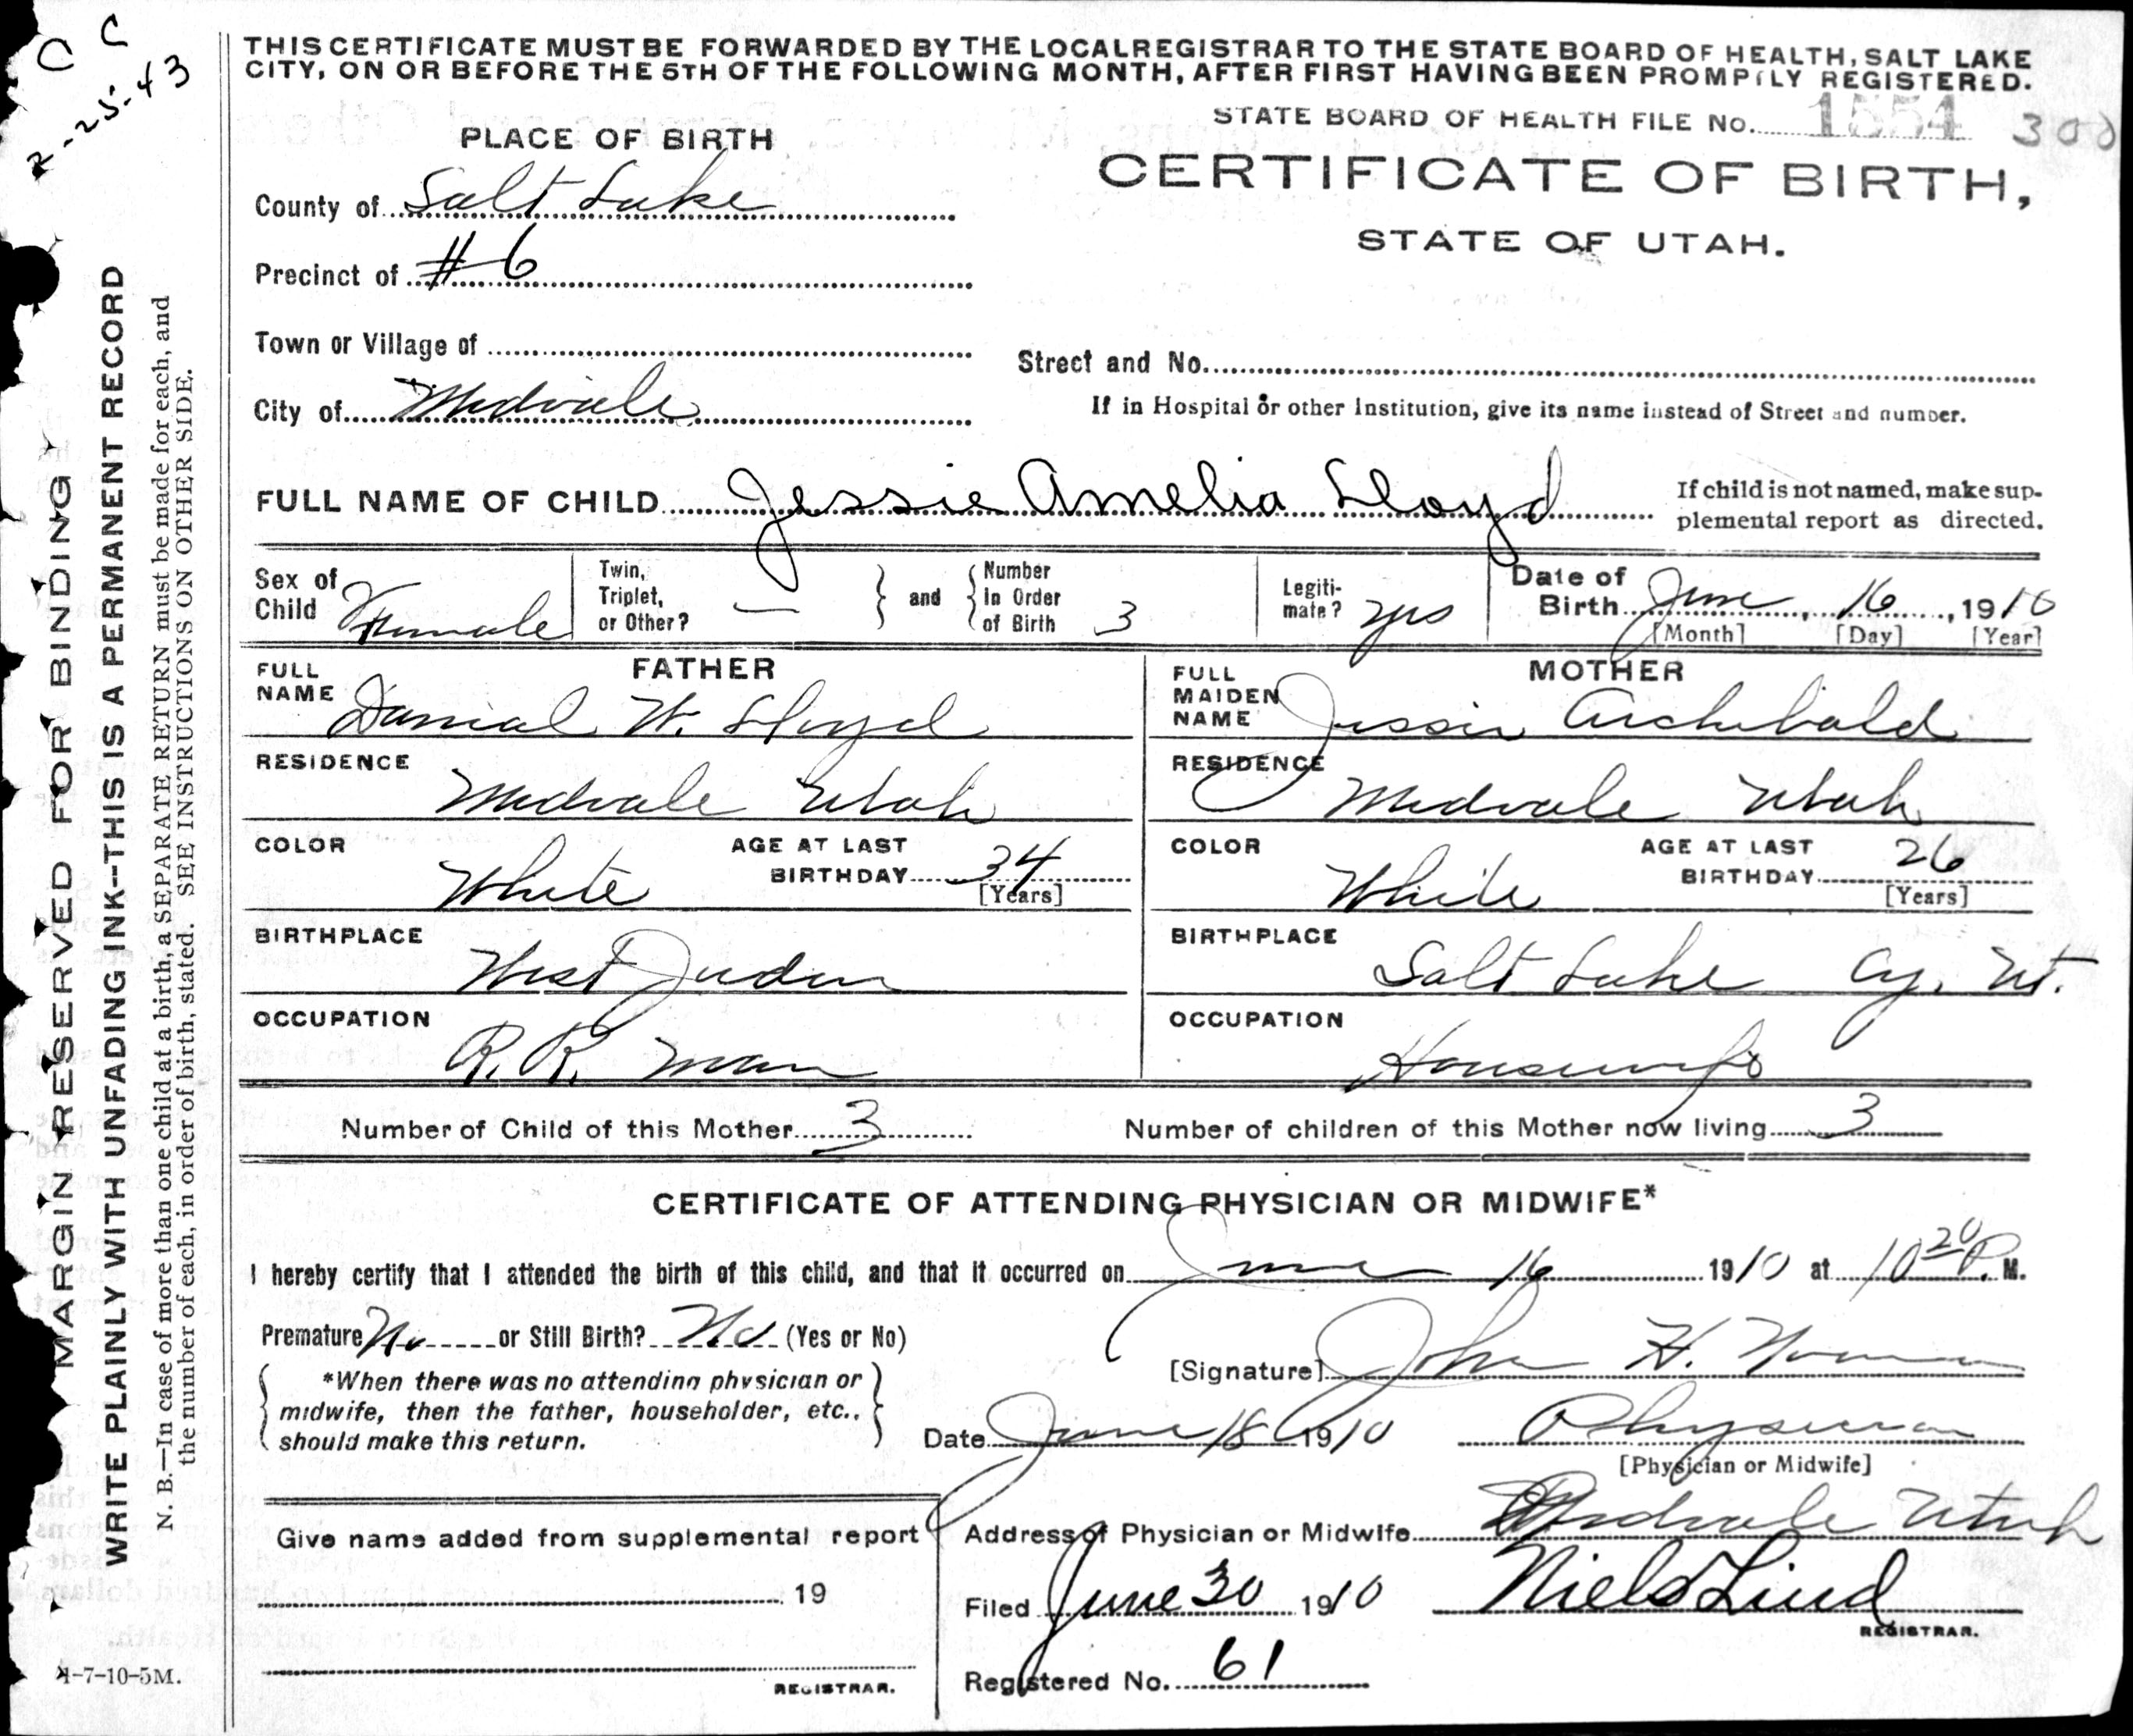 C C
2-25-43
THIS CERTIFICATE MUST BE FORWARDED BY THE LOCAL REGISTRAR TO THE STATE BOARD OF HEALTH, SALT LAKE
CITY, ON OR BEFORE THE 5TH OF THE FOLLOWING MONTH, AFTER FIRST HAVING BEEN PROMPTLY REGISTERED.
STATE BOARD OF HEALTH FILE No. 1554 300
PLACE OF BIRTH
CERTIFICATE OF BIRTH,
STATE OF UTAH.
County of Salt Lake
Precinct of #6
Town or Village of
Street and No.
City of Midvale
If in Hospital or other Institution, give its name instead of Street and number.
FULL NAME OF CHILD Jessie Amelia Lloyd
If child is not named, make sup-
plemental report as directed.
Sex of Child Female
Twin, Triplet, or Other? —
and
Number In Order of Birth 3
Legiti-mate? yes
Date of Birth June, 16, 1910
[Month] [Day] [Year]
FATHER
FULL NAME Danial W. Lloyd
RESIDENCE
Midvale Utah
COLOR White
AGE AT LAST BIRTHDAY 34
[Years]
BIRTHPLACE
West Jordan
OCCUPATION
R. R. man
MOTHER
FULL MAIDEN NAME Jessie Archibald
RESIDENCE
Midvale Utah
COLOR White
AGE AT LAST BIRTHDAY 26
[Years]
BIRTHPLACE
Salt Lake Cy. Ut.
OCCUPATION
Housewife
Number of Child of this Mother 3
Number of children of this Mother now living 3
CERTIFICATE OF ATTENDING PHYSICIAN OR MIDWIFE*
I hereby certify that I attended the birth of this child, and that it occurred on June 16 1910 at 10 20 P. M.
Premature No or Still Birth? No (Yes or No)
[Signature] John H.
*When there was no attending physician or
midwife, then the father, householder, etc.,
should make this return.
Date June 18 1910 Physician
[Physician or Midwife]
Address of Physician or Midwife Midvale Utah
Give name added from supplemental report
19
REGISTRAR.
Filed June 30 1910 Niels Lind
REGISTRAR.
Registered No. 61
MARGIN RESERVED FOR BINDING
WRITE PLAINLY WITH UNFADING INK—THIS IS A PERMANENT RECORD
N. B.—In case of more than one child at a birth, a SEPARATE RETURN must be made for each, and
the number of each, in order of birth, stated. SEE INSTRUCTIONS ON OTHER SIDE.
4-7-10-5M.